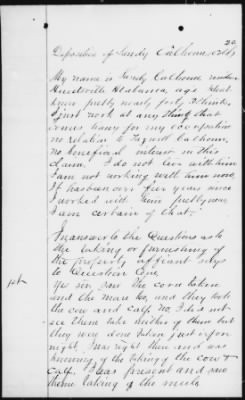 22
Deposition of Sandy Calhoun, Col'd
My name is Sandy Calhoun reside
Huntsville Alabama, age dont
know pretty nearly forty I think,
I just work at any thing that
comes handy for my occupation
no relation to Claimant
no beneficial interest in this
claim. I do not live with him
I am not working with him now.
It has been over four years since
I worked with him pretty near
I am certain of that.
In answer to the Questions as to
the taking or furnishing of
the property, affiant says
to Question One
Yes sir, saw the corn taken
and the mare too, and they took
the cow and calf. No, I did not
see them take neither of them but
they were done taken just upon
night, I was right there and was
knowing of the taking of the cow &
calf. I was present and saw
theme taking of the mule